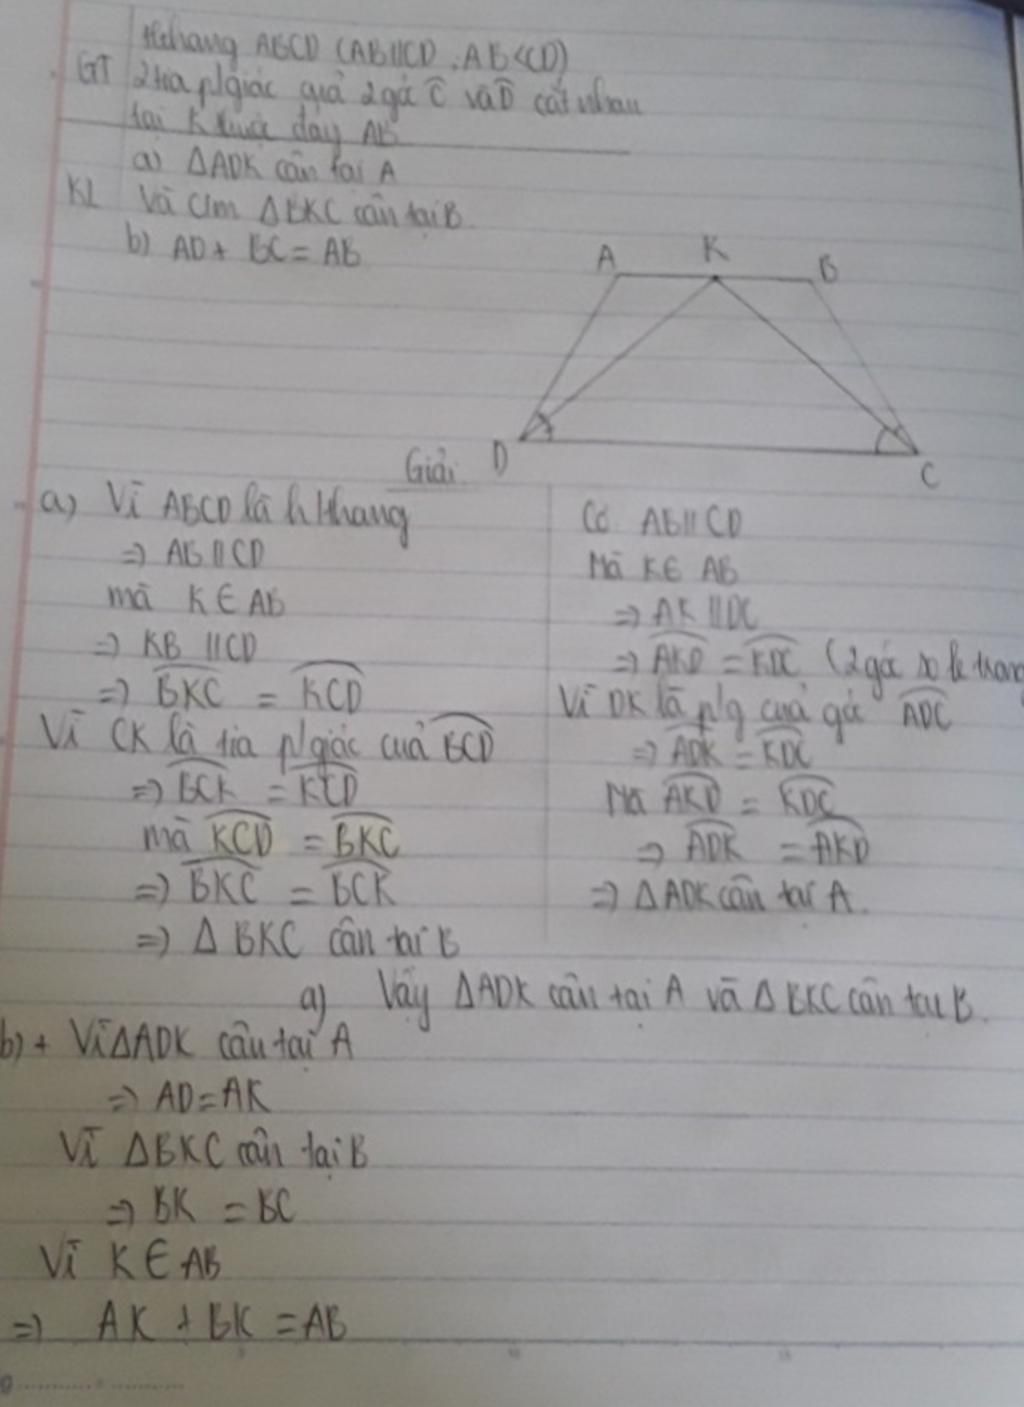 Hthang ABCD (AB//CD, AB<CD)
GT 2 tia p/giác của 2 góc Ĉ và D̂ cắt nhau
tại K thuộc đáy AB
a) ΔADK cân tại A
KL Và c/m ΔBKC cân tại B.
b) AD + BC = AB
A K B
D C
Giải
a) Vì ABCD là h/thang
=> AB // CD
mà K ∈ AB
=> KB // CD
=> BKC = KCD
Vì CK là tia p/giác của BCD
=> BCK = KCD
mà KCD = BKC
=> BKC = BCK
=> Δ BKC cân tại B
Có AB // CD
Mà K ∈ AB
=> AK // DC
=> AKD = KDC (2 góc so le trong
Vì DK là p/g của góc ADC
=> ADK = KDC
Mà AKD = KDC
=> ADK = AKD
=> Δ ADK cân tại A.
a) Vậy ΔADK cân tại A và Δ BKC cân tại B.
b) + Vì ΔADK cân tại A
=> AD = AK
Vì ΔBKC cân tại B
=> BK = BC
Vì K ∈ AB
=> AK + BK = AB